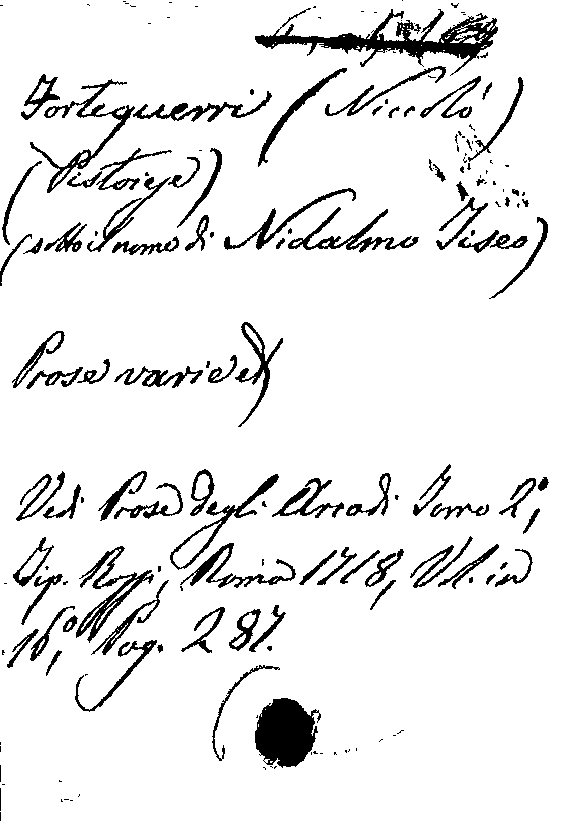 Forteguerri (Niccoló)
(Pistoiese)
(sotto il nome di Nidalmo Tiseo)
Prose varie
Vedi Prose degli Arcadi Tomo 2°,
Tip. Rossi, Roma 1718, Vol. in
16°, Pag. 287.